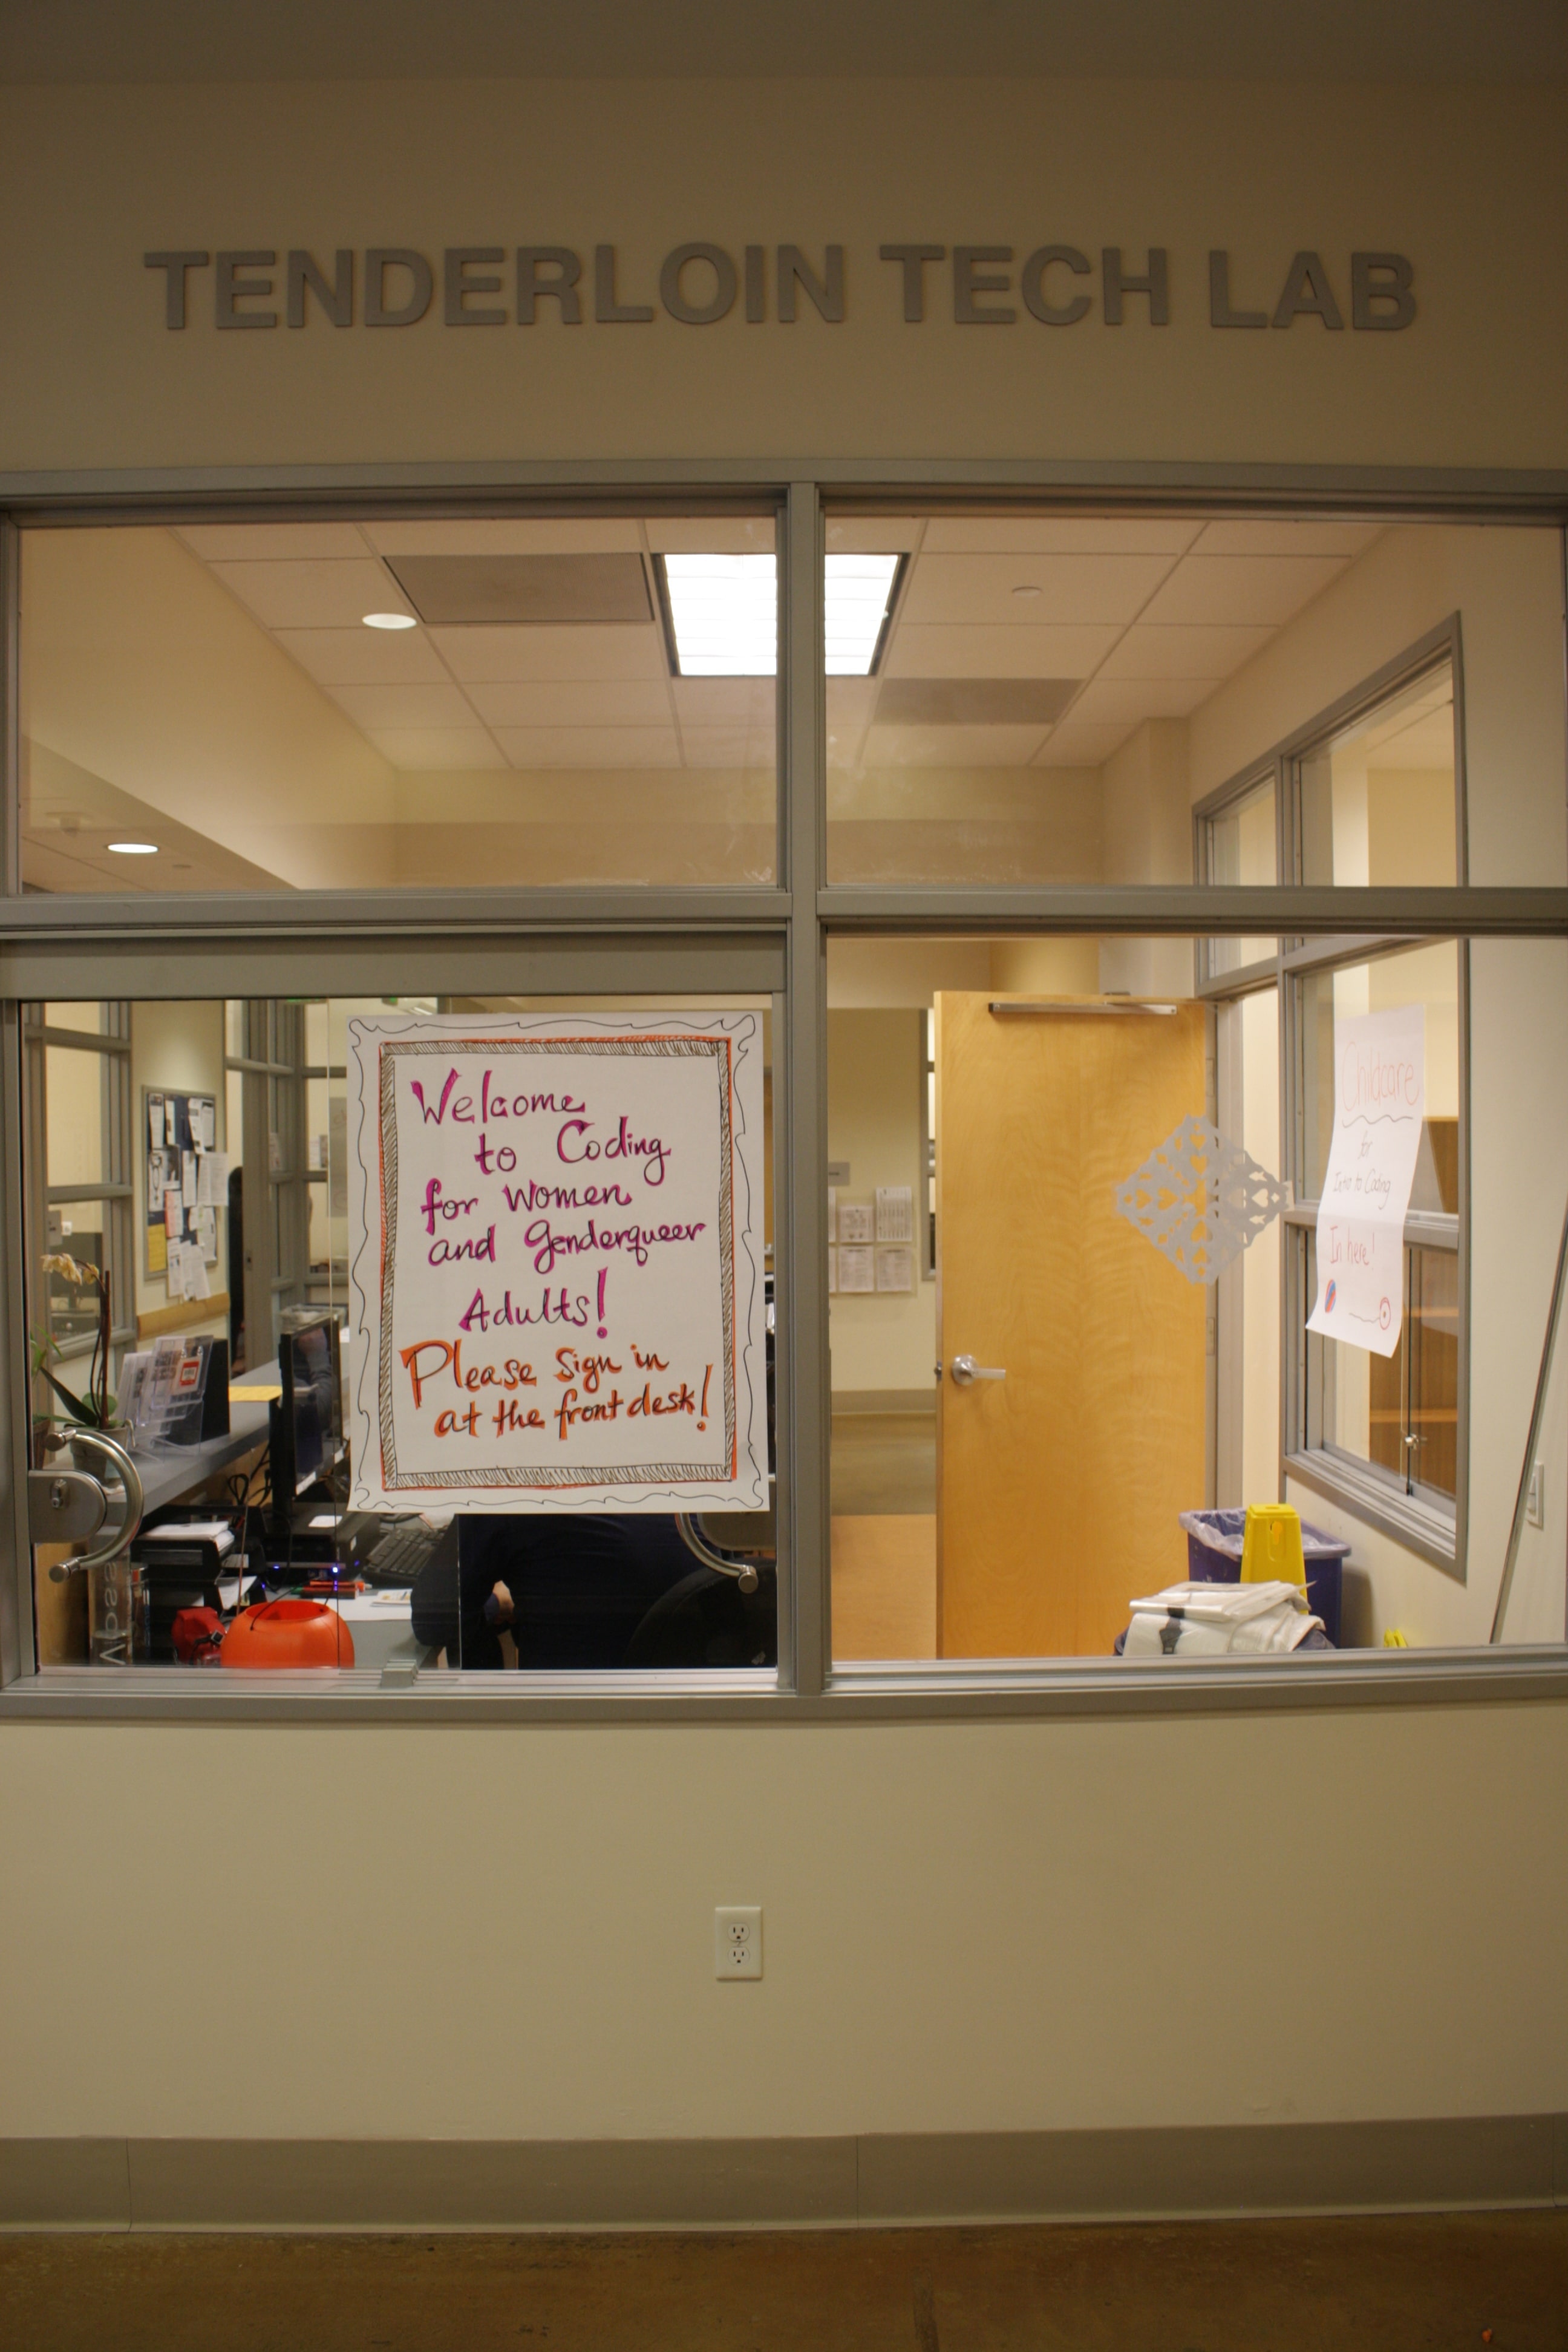 TENDERLOIN TECH LAB
Welcome
to Coding
for Women
and Genderqueer
Adults!
Please sign in
at the front desk!
Childcare
for
Intro to Coding
In here!